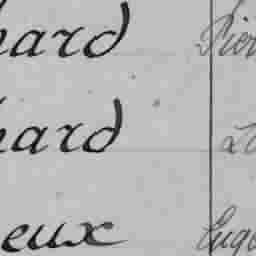 hard Pier
hard Lo
eux Euge